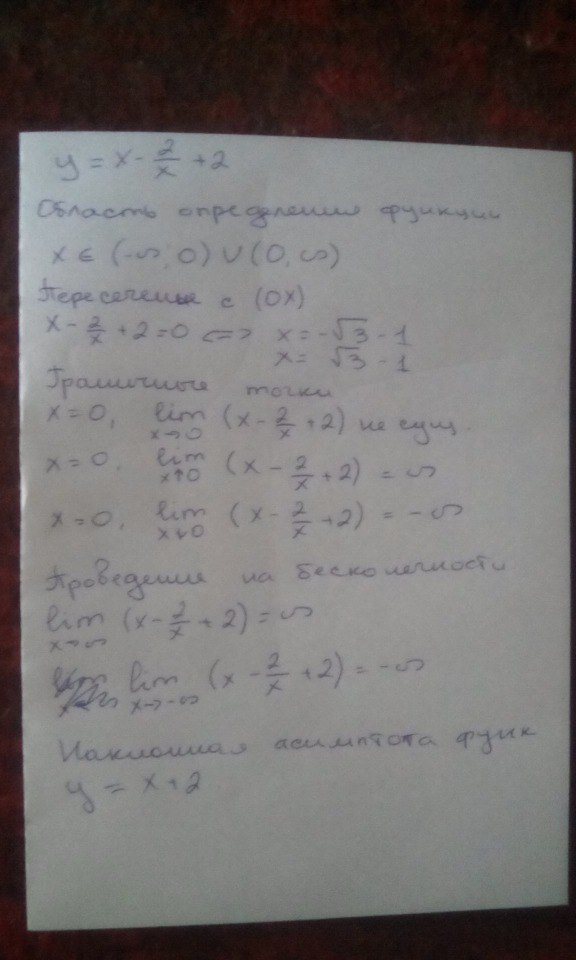 y = x - 2/x + 2
Область определения функции
x ∈ (-∞, 0) ∪ (0, ∞)
Пересечение с (OX)
x - 2/x + 2 = 0 <=> x = -√3 - 1
x = √3 - 1
Граничные точки
x = 0, lim x→0 (x - 2/x + 2) не сущ.
x = 0. lim x↑0 (x - 2/x + 2) = ∞
x = 0, lim x↓0 (x - 2/x + 2) = -∞
Проведение на бесконечности
lim x→∞ (x - 2/x + 2) = ∞
lim x→-∞ (x - 2/x + 2) = -∞
Наклонная асимптота функ
y = x + 2